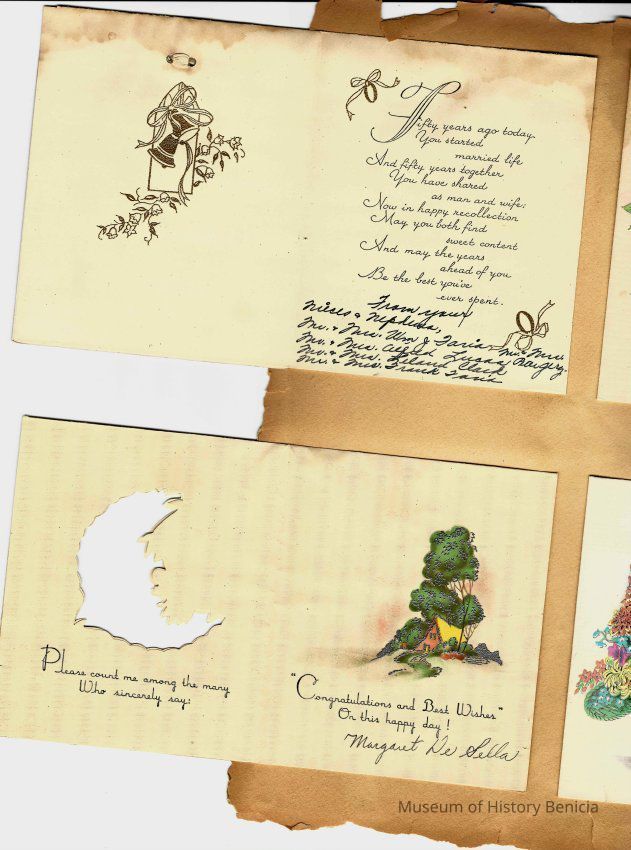 Fifty years ago today,
You started
married life
And fifty years together
You have shared
as man and wife;
Now in happy recollection
May you both find
sweet content
And may the years
ahead of you
Be the best you've
ever spent.
From your
nieces & Nephews,
Mr. & Mrs. Wm J Faria, Mr. & Mrs.
Mr. & Mrs. Alfred Lucas
Mr. & Mrs. Leland Clark
Mr. & Mrs. Frank Faria
Please count me among the many
Who sincerely say:
"Congratulations and Best Wishes"
On this happy day!
Margaret De Sella
Museum of History Benicia